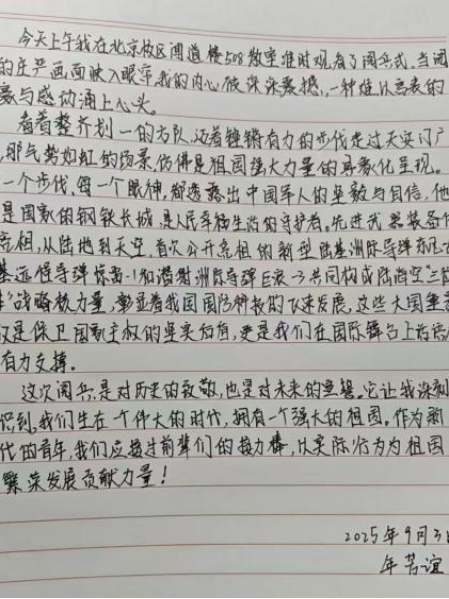 今天上午我在北京校区闻道楼508教室准时观看了阅兵式,当阅
的庄严画面映入眼帘,我的内心被深深震撼,一种难以言表的
豪与感动涌上心头。
看着整齐划一的方队,迈着铿锵有力的步伐走过天安门广
,那气势如虹的场景,仿佛是祖国强大力量的具象化呈现。
一个步伐,每一个眼神,都透露出中国军人的坚毅与自信,他
是国家的钢铁长城,是人民幸福生活的守护者。先进武器装备
亮相,从陆地到天空,首次公开亮相的新型陆基洲际导弹东风
基远程导弹惊雷-1和潜射洲际导弹巨浪-3共同构成陆海空"三
"战略核力量,彰显着我国国防科技的飞速发展,这些大国重
仅是保卫国家主权的坚实后盾,更是我们在国际舞台上
有力支撑。
这次阅兵,是对历史的致敬,也是对未来的宣誓。它让我深刻
识到,我们生在一个伟大的时代,拥有一个强大的祖国。作为新
代的青年,我们应接过前辈们的接力棒,以实际行为为祖国
繁荣发展贡献力量!
2025年9月3日
年芳谊